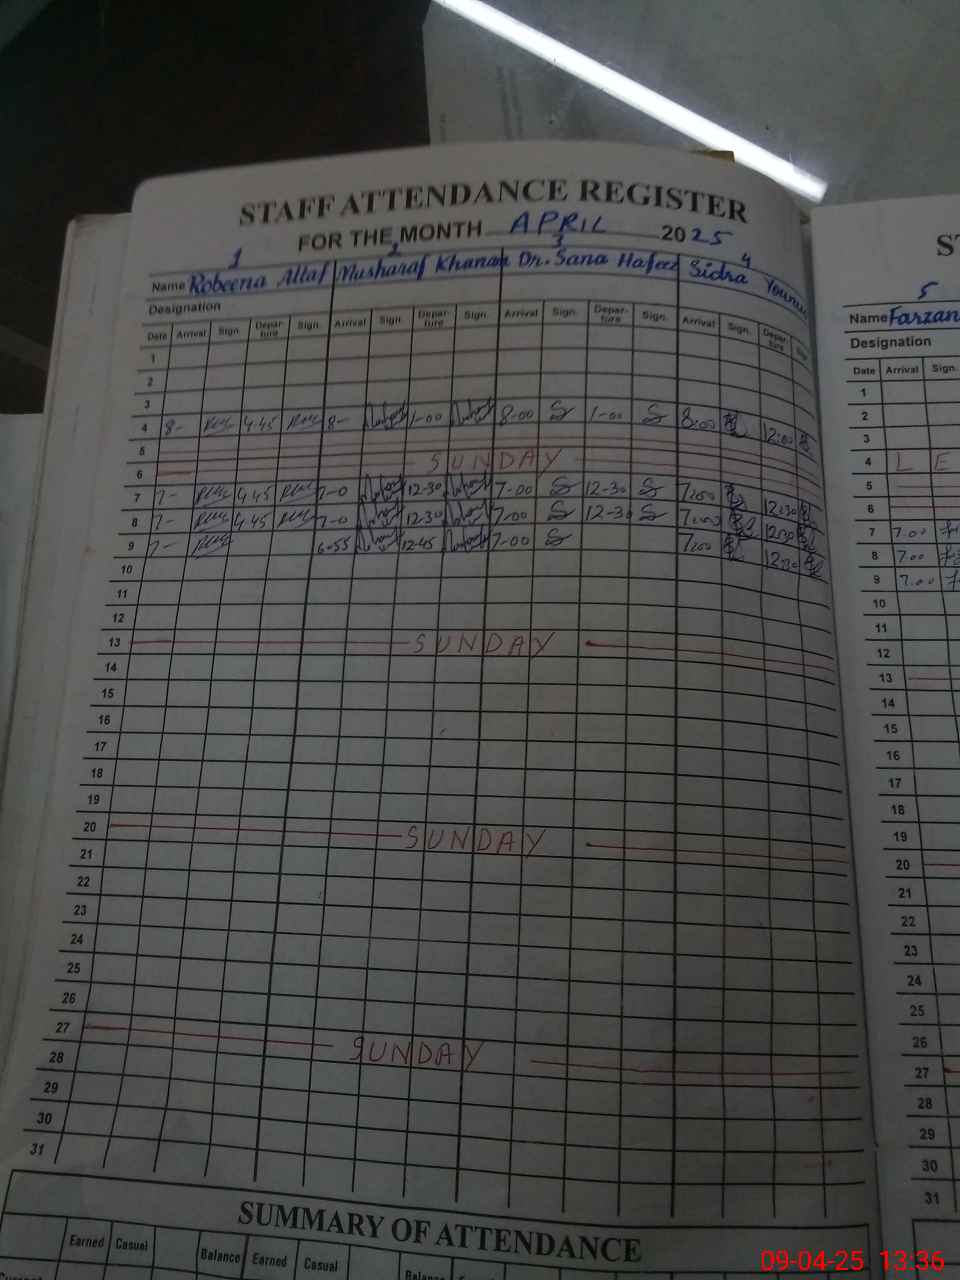 STAFF ATTENDANCE REGISTER
FOR THE MONTH APRIL 2025
1 2 3 4
Name Robeena Altaf Musharaf Khanam Dr. Sana Hafeez Sidra Younus
Designation
Date Arrival Sign. Depar-ture Sign. Arrival Sign. Depar-ture Sign. Arrival Sign. Depar-ture Sign. Arrival Sign. Depar-ture Sign
1
2
3
4 8- 4.45 8- 1-00 8-00 1-00 8:00 12:00
5
6 SUNDAY
7 7- 4.45 7-0 12-30 7-00 12-30 7:00 12:30
8 7- 4.45 7-0 12-30 7-00 12-30 7:00 12:30
9 7- 6-55 12-45 7-00 7:00 12:30
10
11
12
13 SUNDAY
14
15
16
17
18
19
20 SUNDAY
21
22
23
24
25
26
27 SUNDAY
28
29
30
31
SUMMARY OF ATTENDANCE
Earned Casual Balance Earned Casual Balance
5
Name Farzan
Designation
Date Arrival Sign.
1
2
3
4 L E
5
6
7 7.00
8 7.00
9 7.00
10
11
12
13
14
15
16
17
18
19
20
21
22
23
24
25
26
27
28
29
30
31
09-04-25 13:36